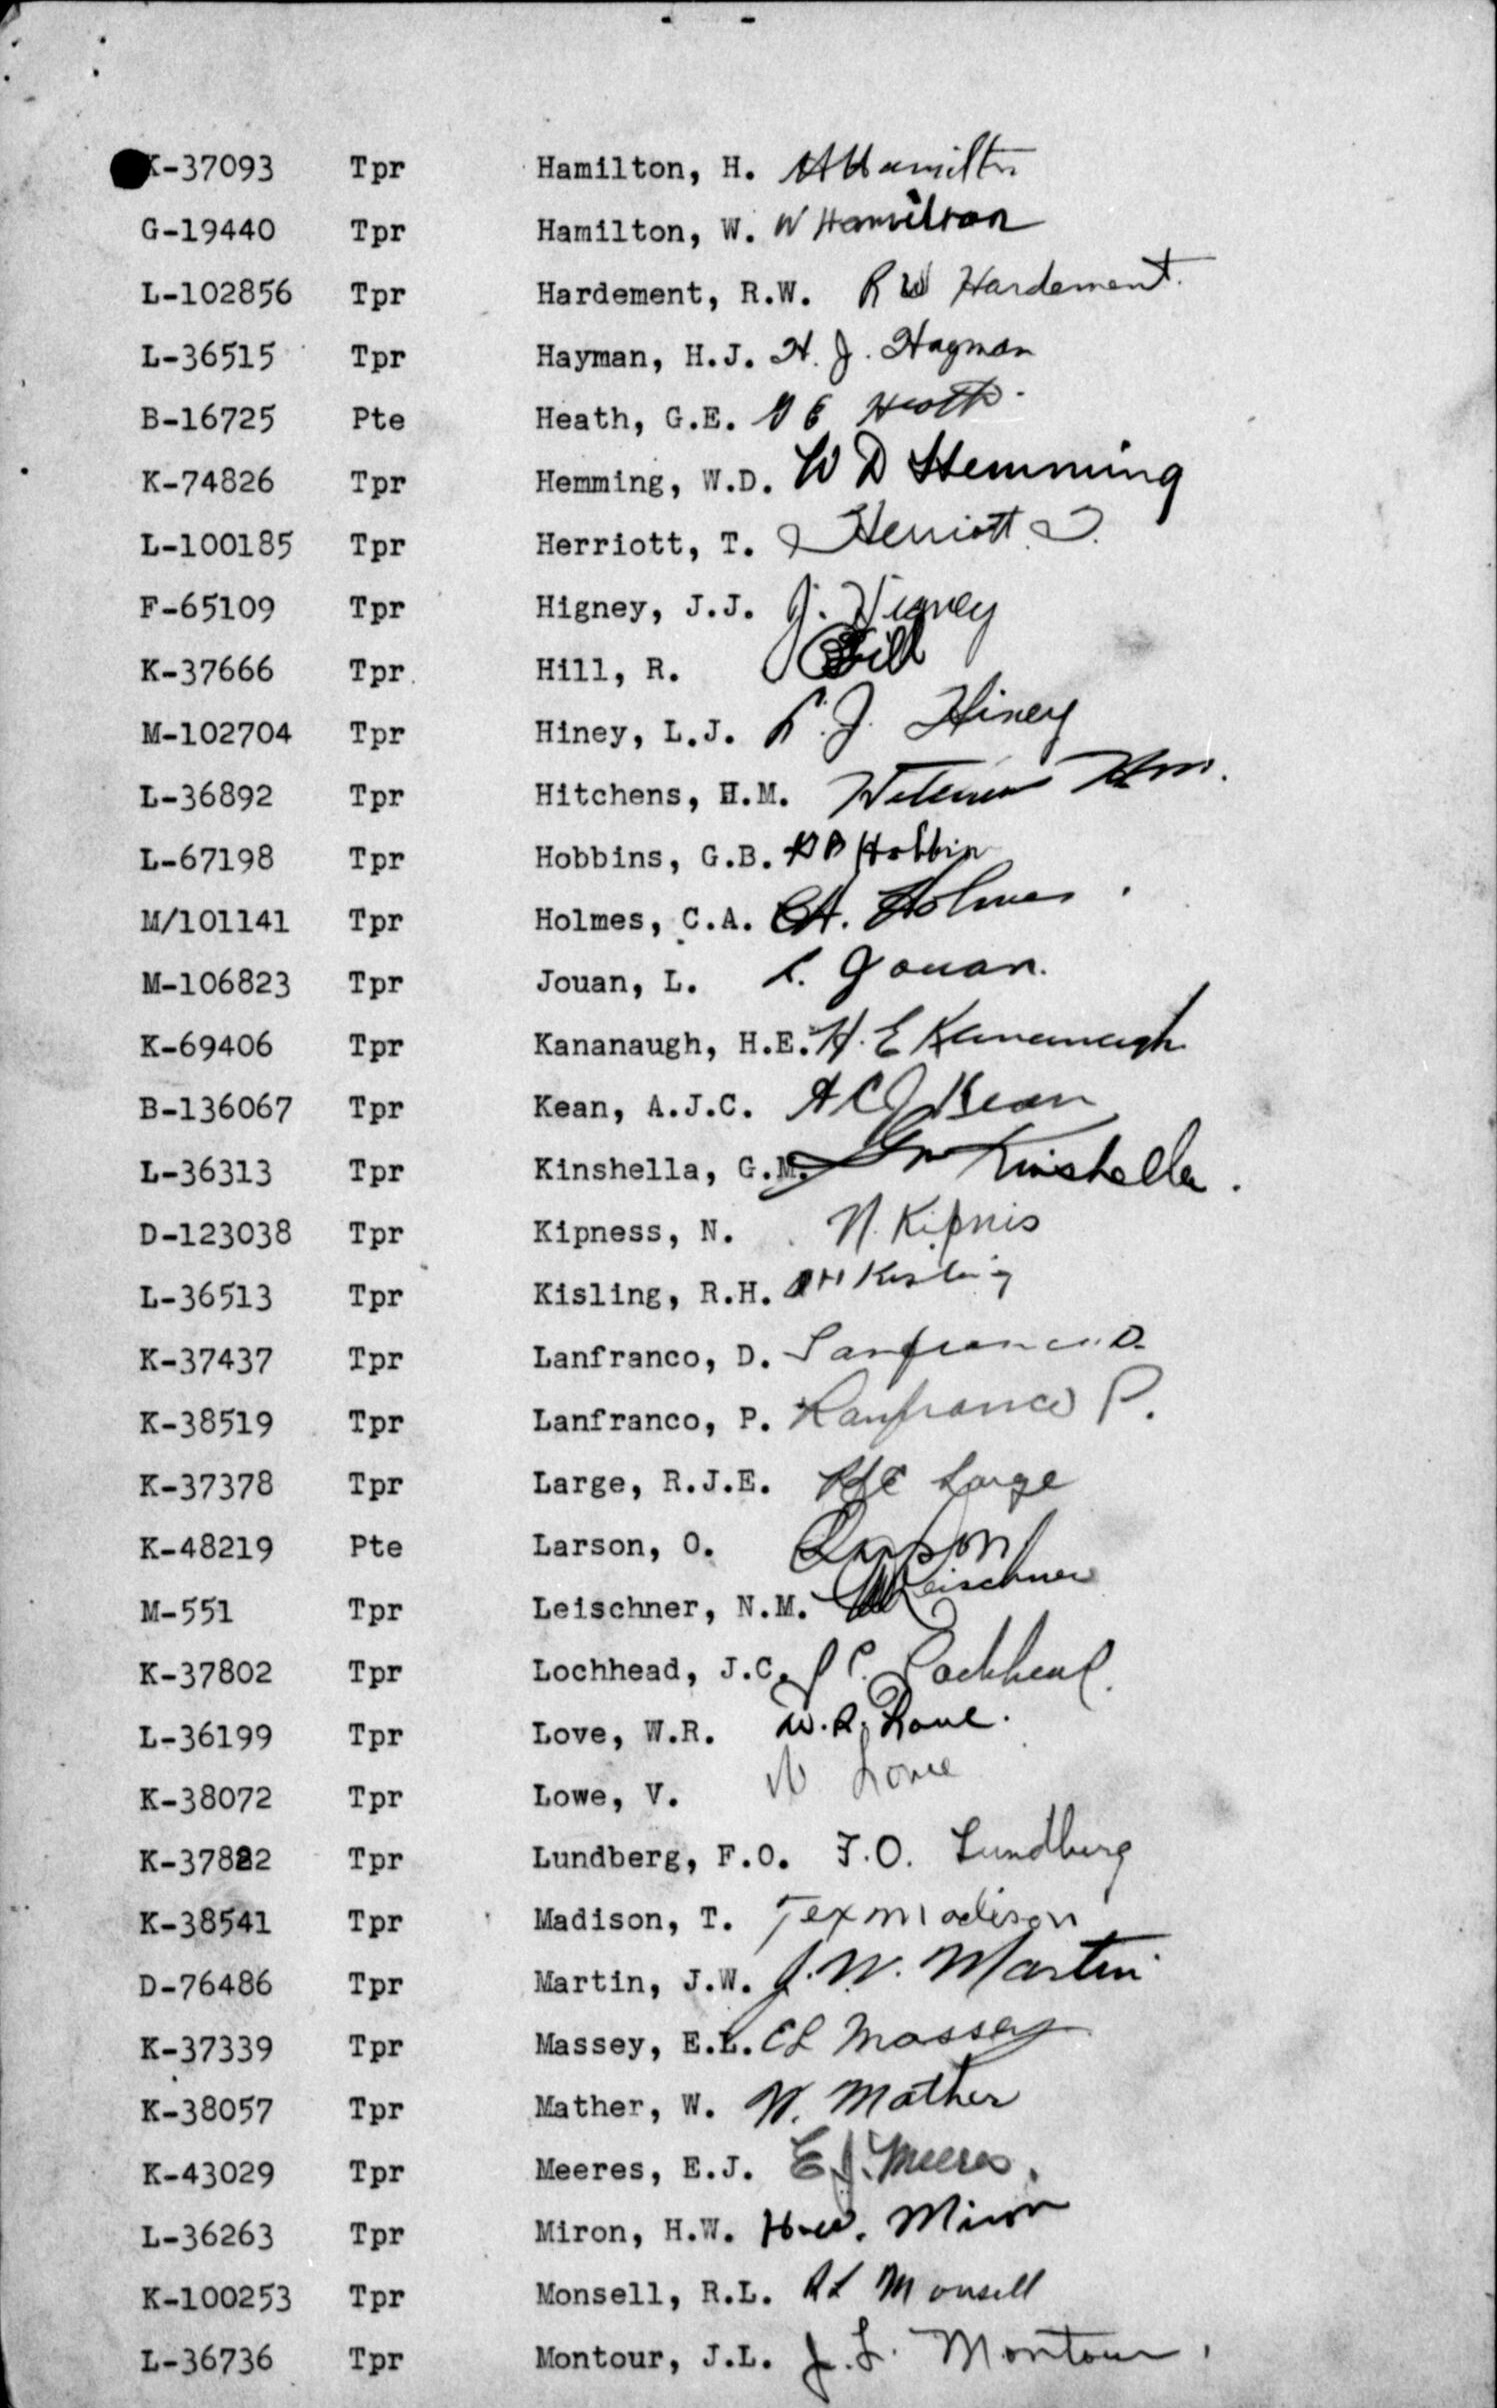 K-37093 Tpr Hamilton, H. H Hamilton
G-19440 Tpr Hamilton, W. W Hamilton
L-102856 Tpr Hardement, R.W. R W Hardement.
L-36515 Tpr Hayman, H.J. H. J. Hayman
B-16725 Pte Heath, G.E. G E Heath.
K-74826 Tpr Hemming, W.D. W D Hemming
L-100185 Tpr Herriott, T. Herriott. T.
F-65109 Tpr Higney, J.J. J. Higney
K-37666 Tpr. Hill, R. Hill
M-102704 Tpr Hiney, L.J. L. J. Hiney
L-36892 Tpr Hitchens, H.M. Hitchens H.M.
L-67198 Tpr Hobbins, G.B. G B Hobbin
M/101141 Tpr Holmes, C.A. C.A. Holmes.
M-106823 Tpr Jouan, L. L. Jouan.
K-69406 Tpr Kananaugh, H.E. H. E Kavanaugh
B-136067 Tpr Kean, A.J.C. A C J Kean
L-36313 Tpr Kinshella, G.M. G M Kinshella.
D-123038 Tpr Kipness, N. N. Kipnis
L-36513 Tpr Kisling, R.H. R H Kisling
K-37437 Tpr Lanfranco, D. Lanfranco. D.
K-38519 Tpr Lanfranco, P. Lanfranco P.
K-37378 Tpr Large, R.J.E. RJE Large
K-48219 Pte Larson, O. O Larson
M-551 Tpr Leischner, N.M. Leischner
K-37802 Tpr Lochhead, J.C. J C. Lochhead.
L-36199 Tpr Love, W.R. W. R. Love.
K-38072 Tpr Lowe, V. V Lowe
K-37882 Tpr Lundberg, F.O. F.O. Lundberg
K-38541 Tpr Madison, T. Tex Madison
D-76486 Tpr Martin, J.W. J. W. Martin
K-37339 Tpr Massey, E.L. E L Massey
K-38057 Tpr Mather, W. W. Mather
K-43029 Tpr Meeres, E.J. E J. Meeres.
L-36263 Tpr Miron, H.W. H.W. Miron
K-100253 Tpr Monsell, R.L. R L Monsell
L-36736 Tpr Montour, J.L. J. L. Montour.